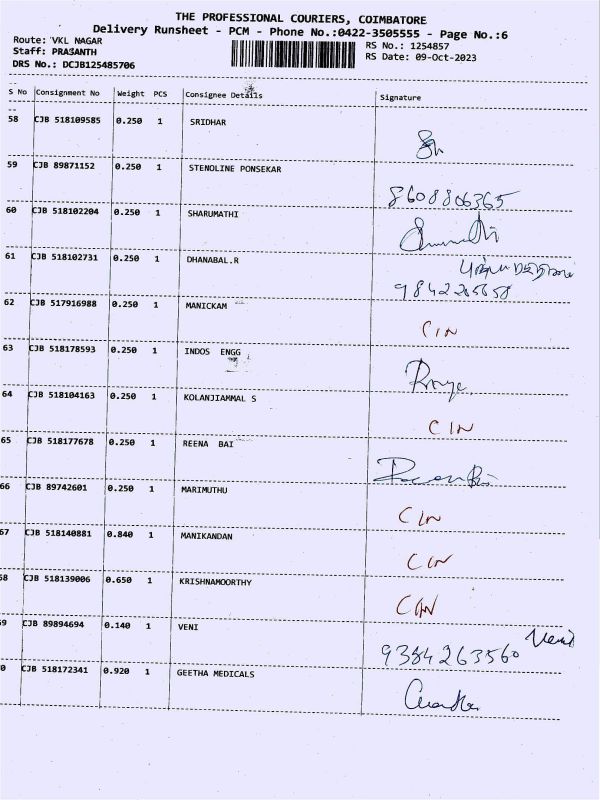 THE PROFESSIONAL COURIERS, COIMBATORE
Delivery Runsheet - PCM - Phone No.:0422-3505555 - Page No.:6
Route: VKL NAGAR
RS No.: 1254857
Staff: PRASANTH
RS Date: 09-Oct-2023
DRS No.: DCJB125485706
S No Consignment No Weight PCS Consignee Details Signature
58 CJB 518109585 0.250 1 SRIDHAR
59 CJB 89871152 0.250 1 STENOLINE PONSEKAR
8608806365
60 CJB 518102204 0.250 1 SHARUMATHI
61 CJB 518102731 0.250 1 DHANABAL.R
62 CJB 517916988 0.250 1 MANICKAM
CIN
63 CJB 518178593 0.250 1 INDOS ENGG
64 CJB 518104163 0.250 1 KOLANJIAMMAL S
CIN
65 CJB 518177678 0.250 1 REENA BAI
66 CJB 89742601 0.250 1 MARIMUTHU
CIN
67 CJB 518140881 0.840 1 MANIKANDAN
CIN
68 CJB 518139006 0.650 1 KRISHNAMOORTHY
CIN
9 CJB 89894694 0.140 1 VENI
9384263560 Veni
0 CJB 518172341 0.920 1 GEETHA MEDICALS